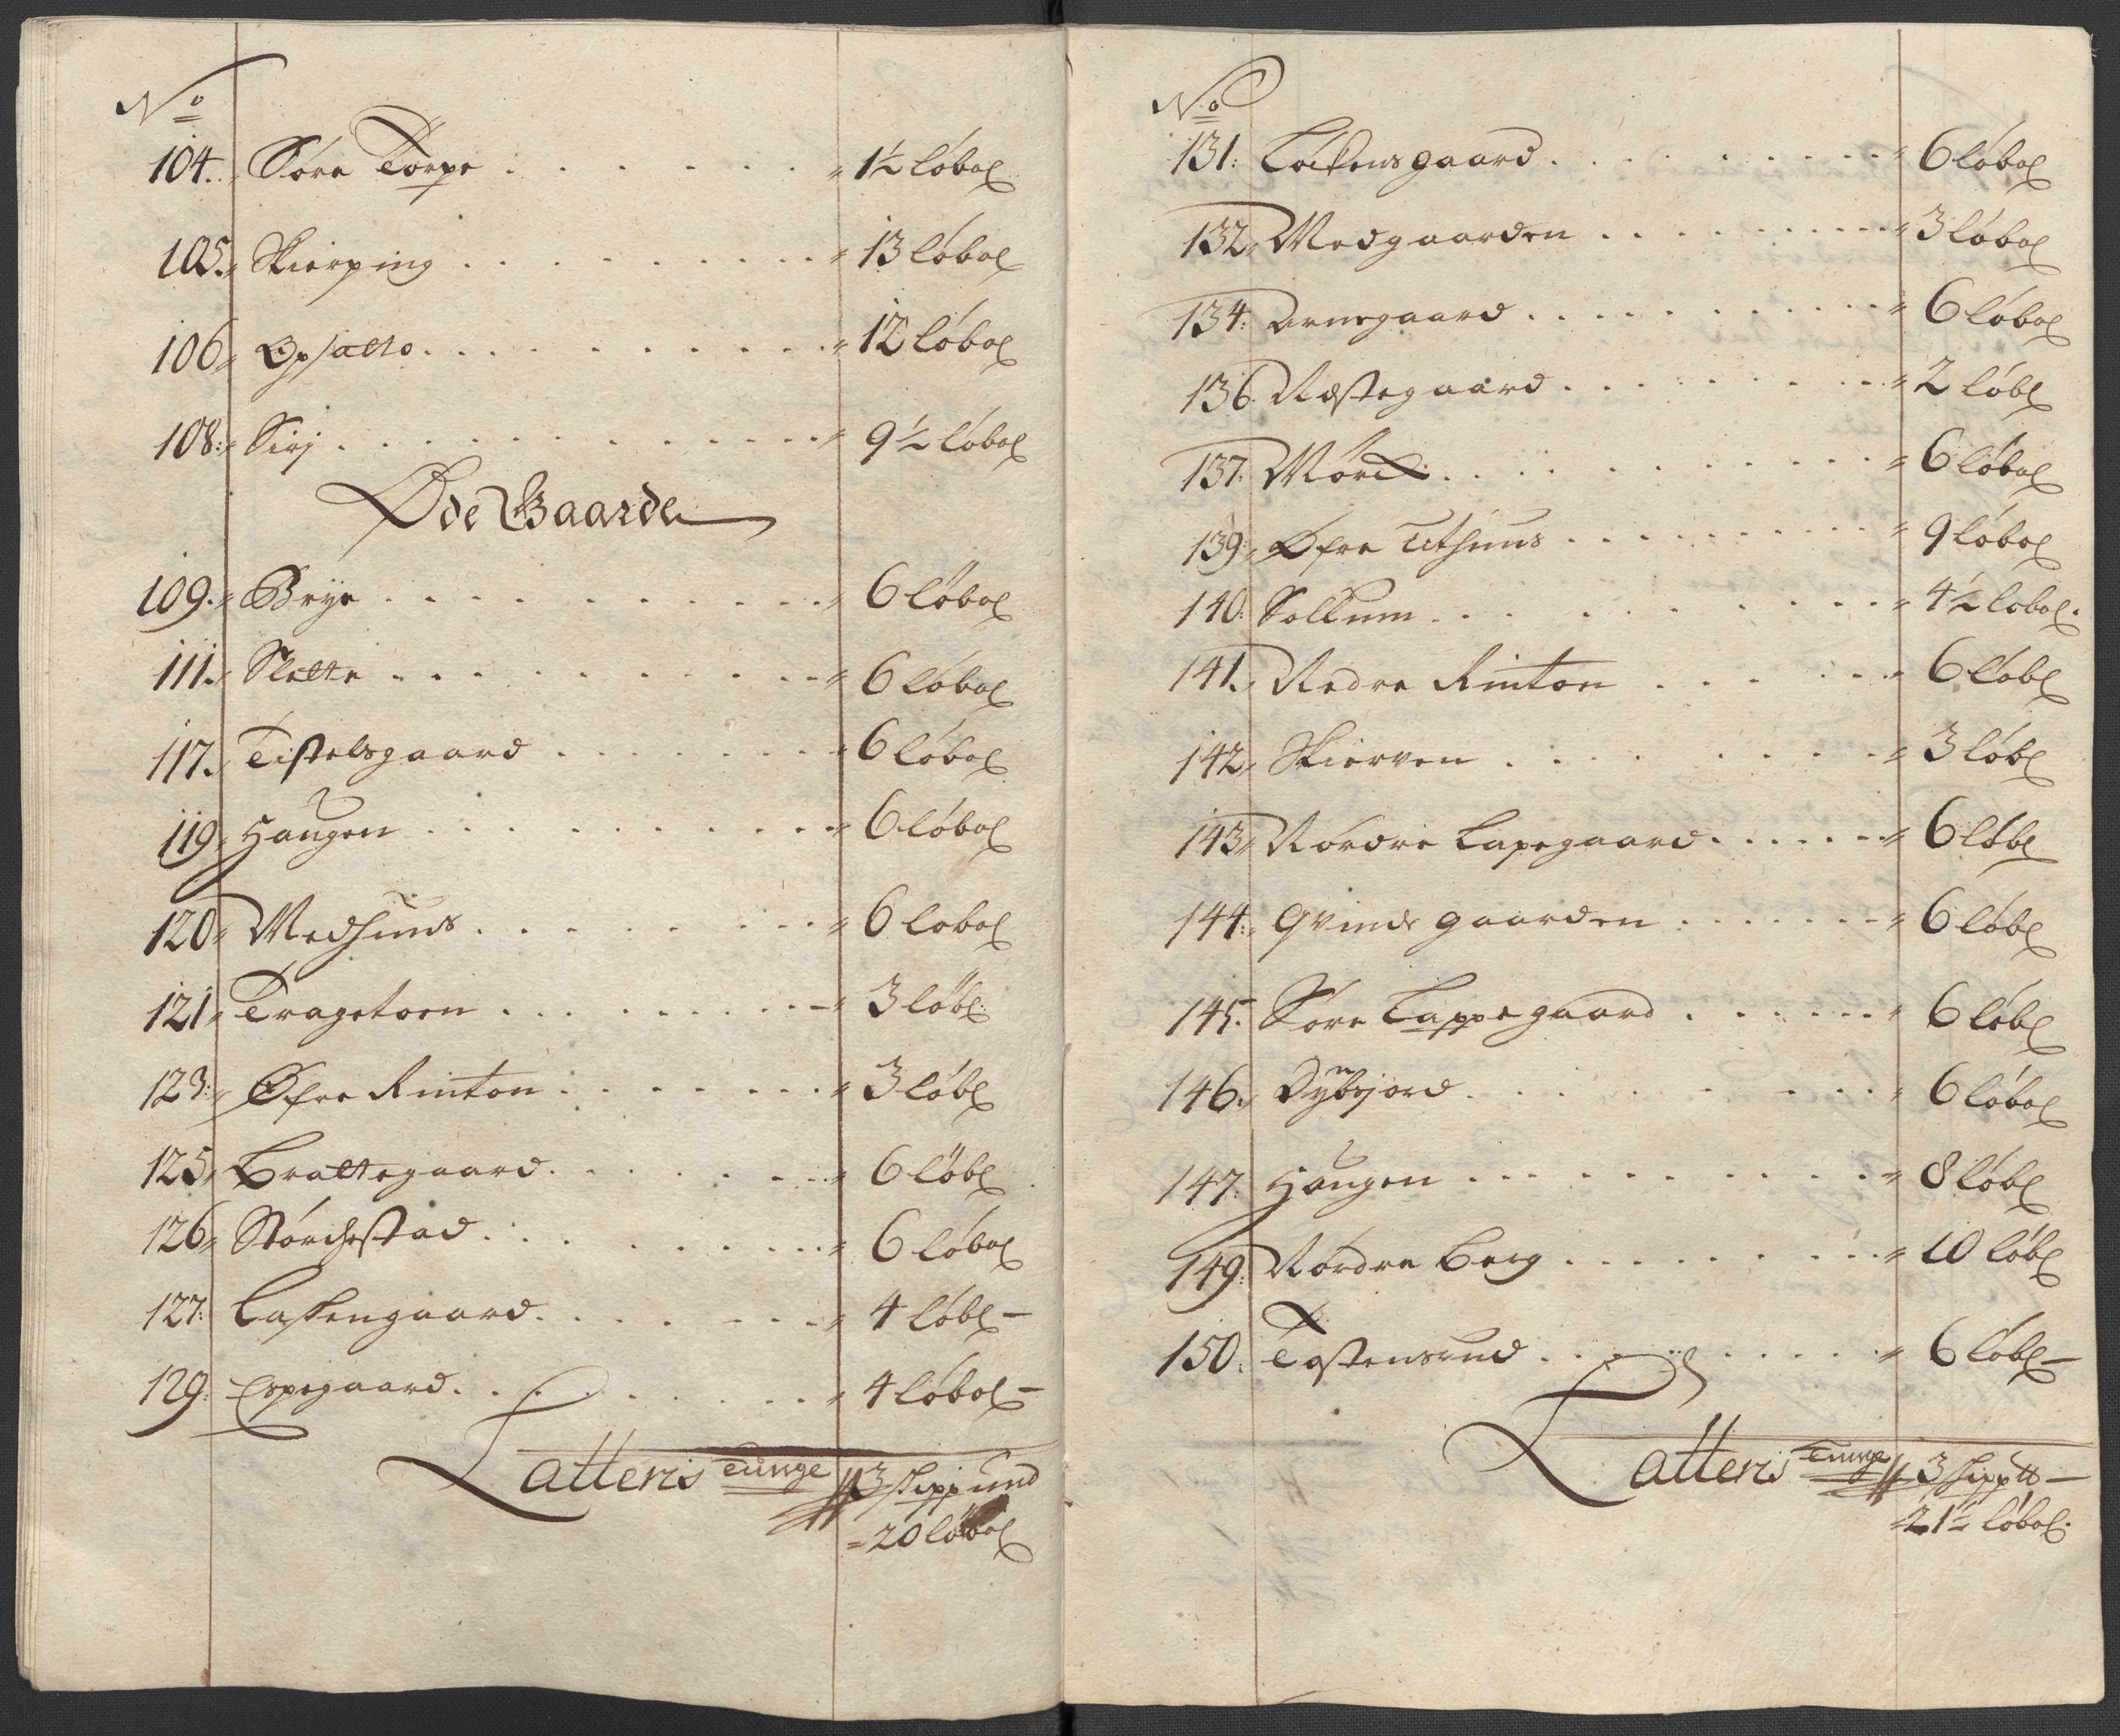 No
104. Søre Torpe . . . . . . 1½ løbol
105. Skierping . . . . . . 13 løbol
106 Opsatto . . . . . . 12 løbol
108: Sirj . . . . . . 9½ løbol
Øde Gaarde
109. Brye . . . . . . 6 løbol
111. Slette . . . . . . 6 løbol
117. Tistelsgaard . . . . . . 6 løbol
119 Haugen . . . . . . 6 løbol
120 Medhuus . . . . . . 6 lobol
121 Tragetoen . . . . . . 3 løbl:
123: Øfre Rinton . . . . . . 3 løbl
125 Brattegaard . . . . . . 6 løbl
126 Størchestad . . . . . . 6 løbol
127: Lassengaard . . . . . . 4 løbl –
129: Espegaard . . . . . . 4 løbol –
Latteris Tunge 3 skippund
20 løbol
No
131: Lockensgaard . . . . . . 6 løbol
132 Medgaarden . . . . . . 3 løbol
134: Arnegaard . . . . . . 6 løbol
136. Næstegaard . . . . . . 2 løbl
137: Mørck . . . . . . 6 løbol
139: Øfre Uthuus . . . . . . 9 løbol
140: Sollum . . . . . . 4½ lobol.
141. Nedre Rinton . . . . . . 6 løbl
142 Skierven . . . . . . 3 løbl
143 Nørdre Lapegaard . . . . . . 6 løbl
144: Qvindegaarden . . . . . . 6 løbl
145. Søre Lappegaard . . . . . . 6 løbl
146. Dybsjord . . . . . . 6 løbol
147: Haugen . . . . . . 8 løbl
149: Nørdre Berg . . . . . . 10 løbl
150: Tostensrud . . . . . . 6 løbl –
Latteris Tunge 3 skipp℔ –
21½ løbol.